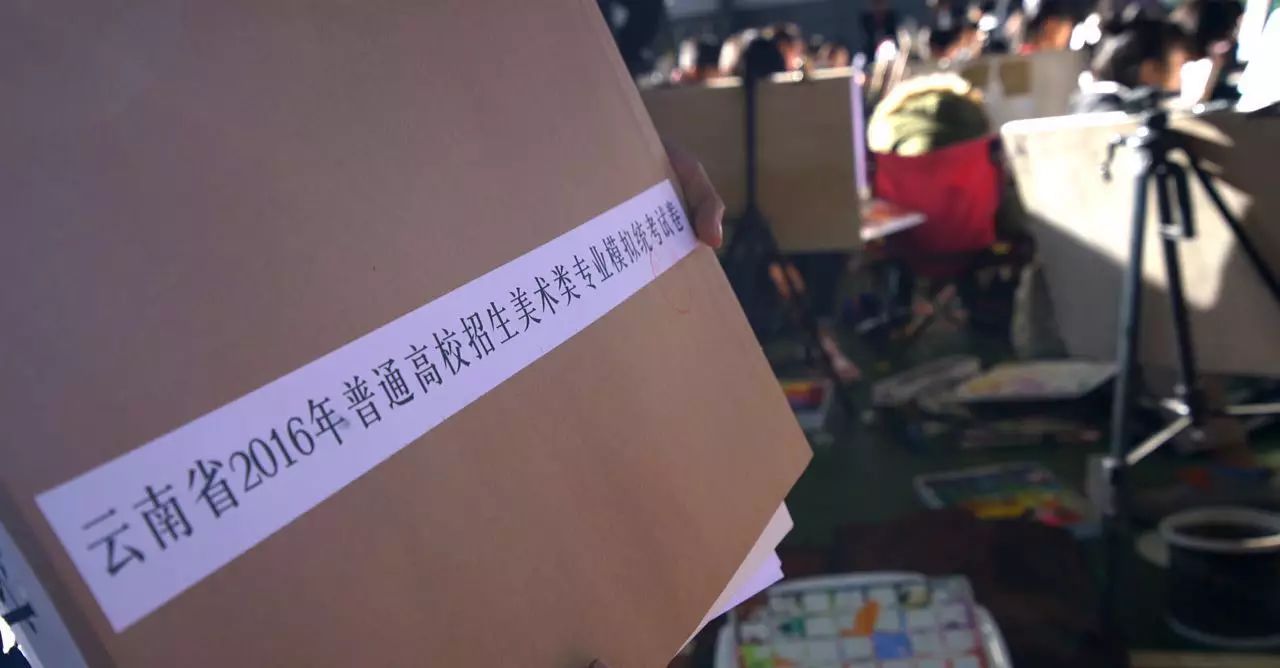 云南省2016年普通高校招生美术类专业模拟统考试卷